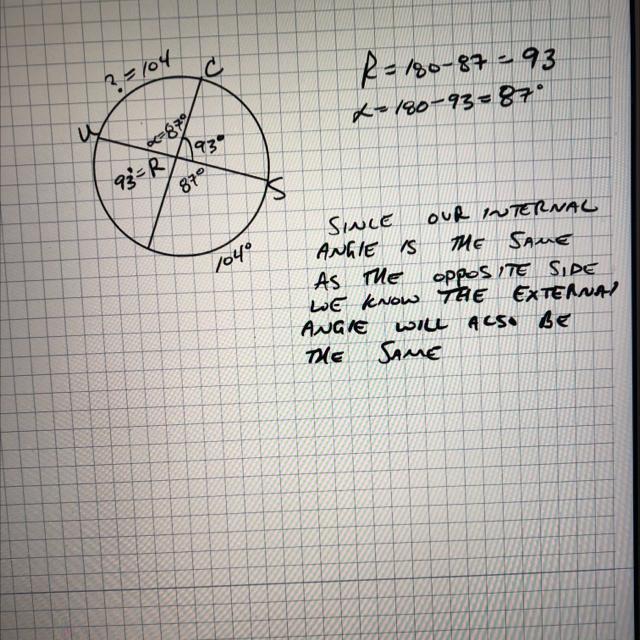 ? = 104
C
R = 180 - 87 = 93
α = 180 - 93 = 87°
U
α = 87°
93°
93° = R
87°
S
104°
SINCE OUR INTERNAL
ANGLE IS THE SAME
AS THE OPPOSITE SIDE
WE KNOW THE EXTERNAL
ANGLE WILL ALSO BE
THE SAME